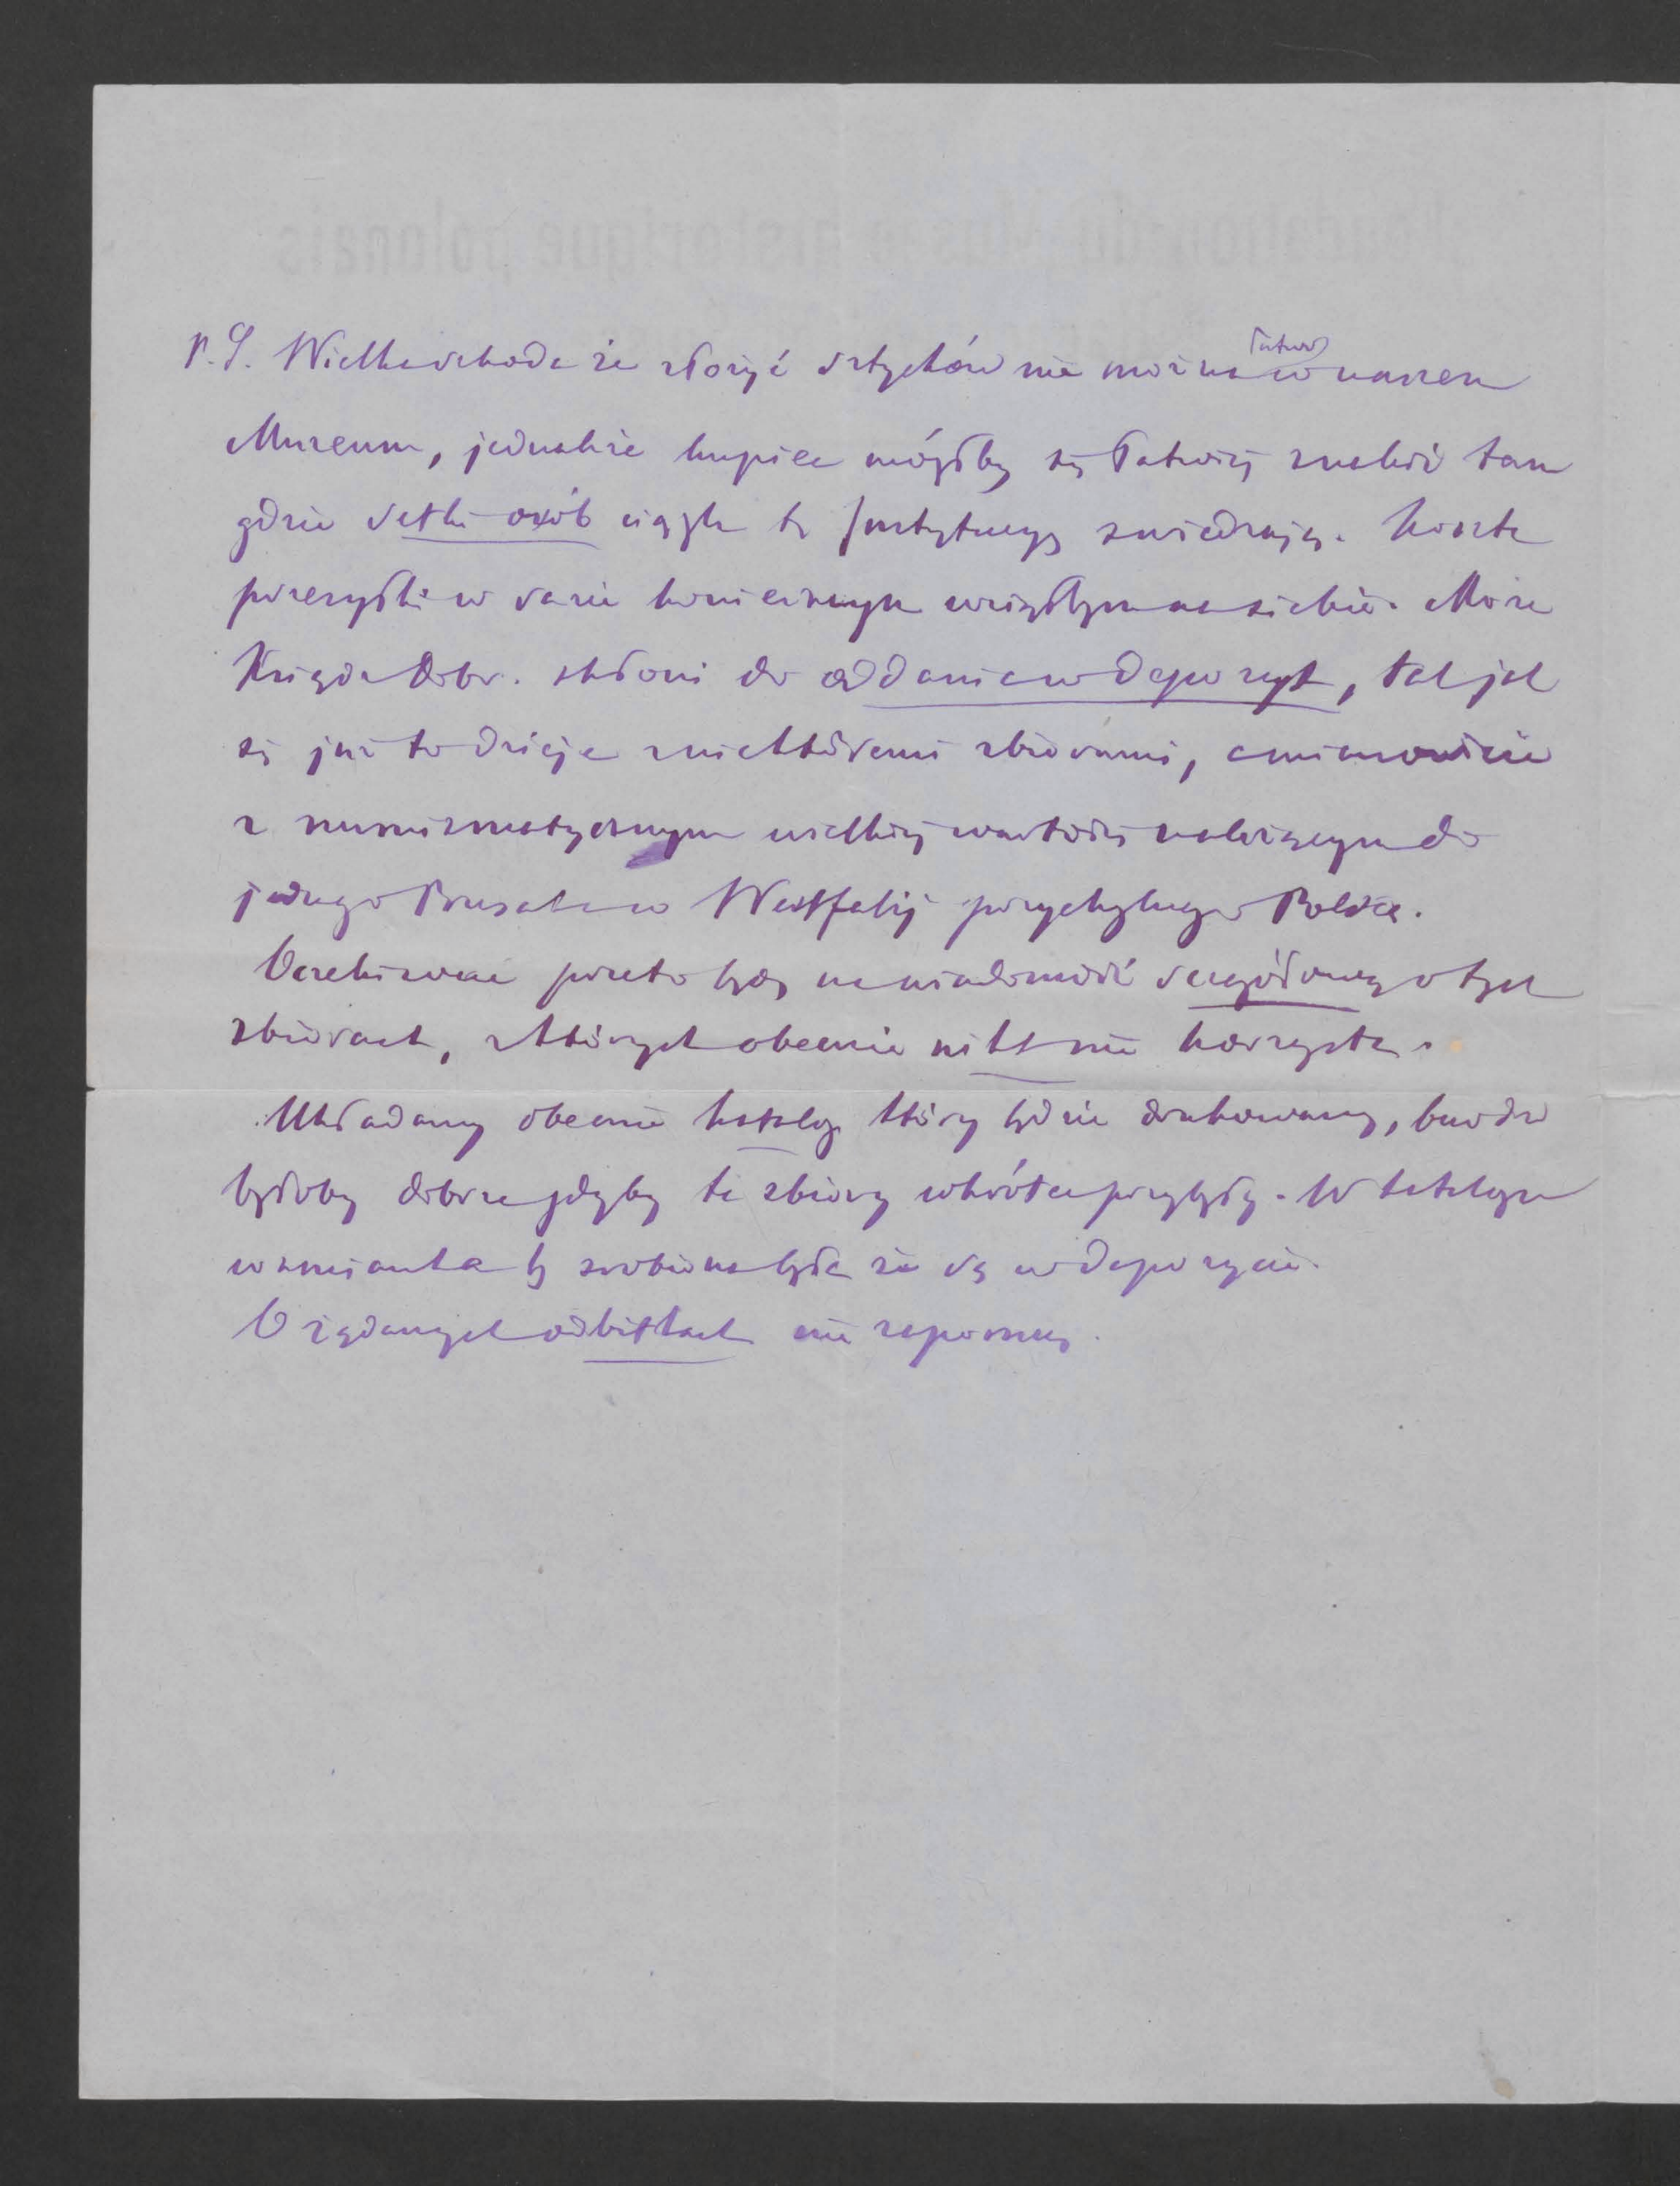 P.S. Wielka szkoda że złożyć sztychów nie można łatwo w naszem
Muzeum, jednakże kupiec mógłby się łatwiej znaleźć tam
gdzie setki osób ciągle tę Instytucyę zwiedzają. Koszta
przesyłki w razie koniecznym wziąłbym na siebie. Może
Książe Dobr. skłoni do oddania w depozyt, tak jak
się już to dzieje z niektóremi zbiorami, a mianowicie
z numizmatycznym wielkiej wartości należącym do
jednego Prusaka w Westfalij przychylnego Polsce.
Oczekiwać przeto będę na wiadomość szczegółową o tych
zbiorach, z których obecnie nikt nie korzysta.
Układamy obecnie katalog który będzie drukowany, bardzo
byłoby dobrze gdyby te zbiory wkrótce przybyły. W katalogu
wzmianka by zrobiona była że są w depozycie.
O żądanych odbitkach nie zapomnę.